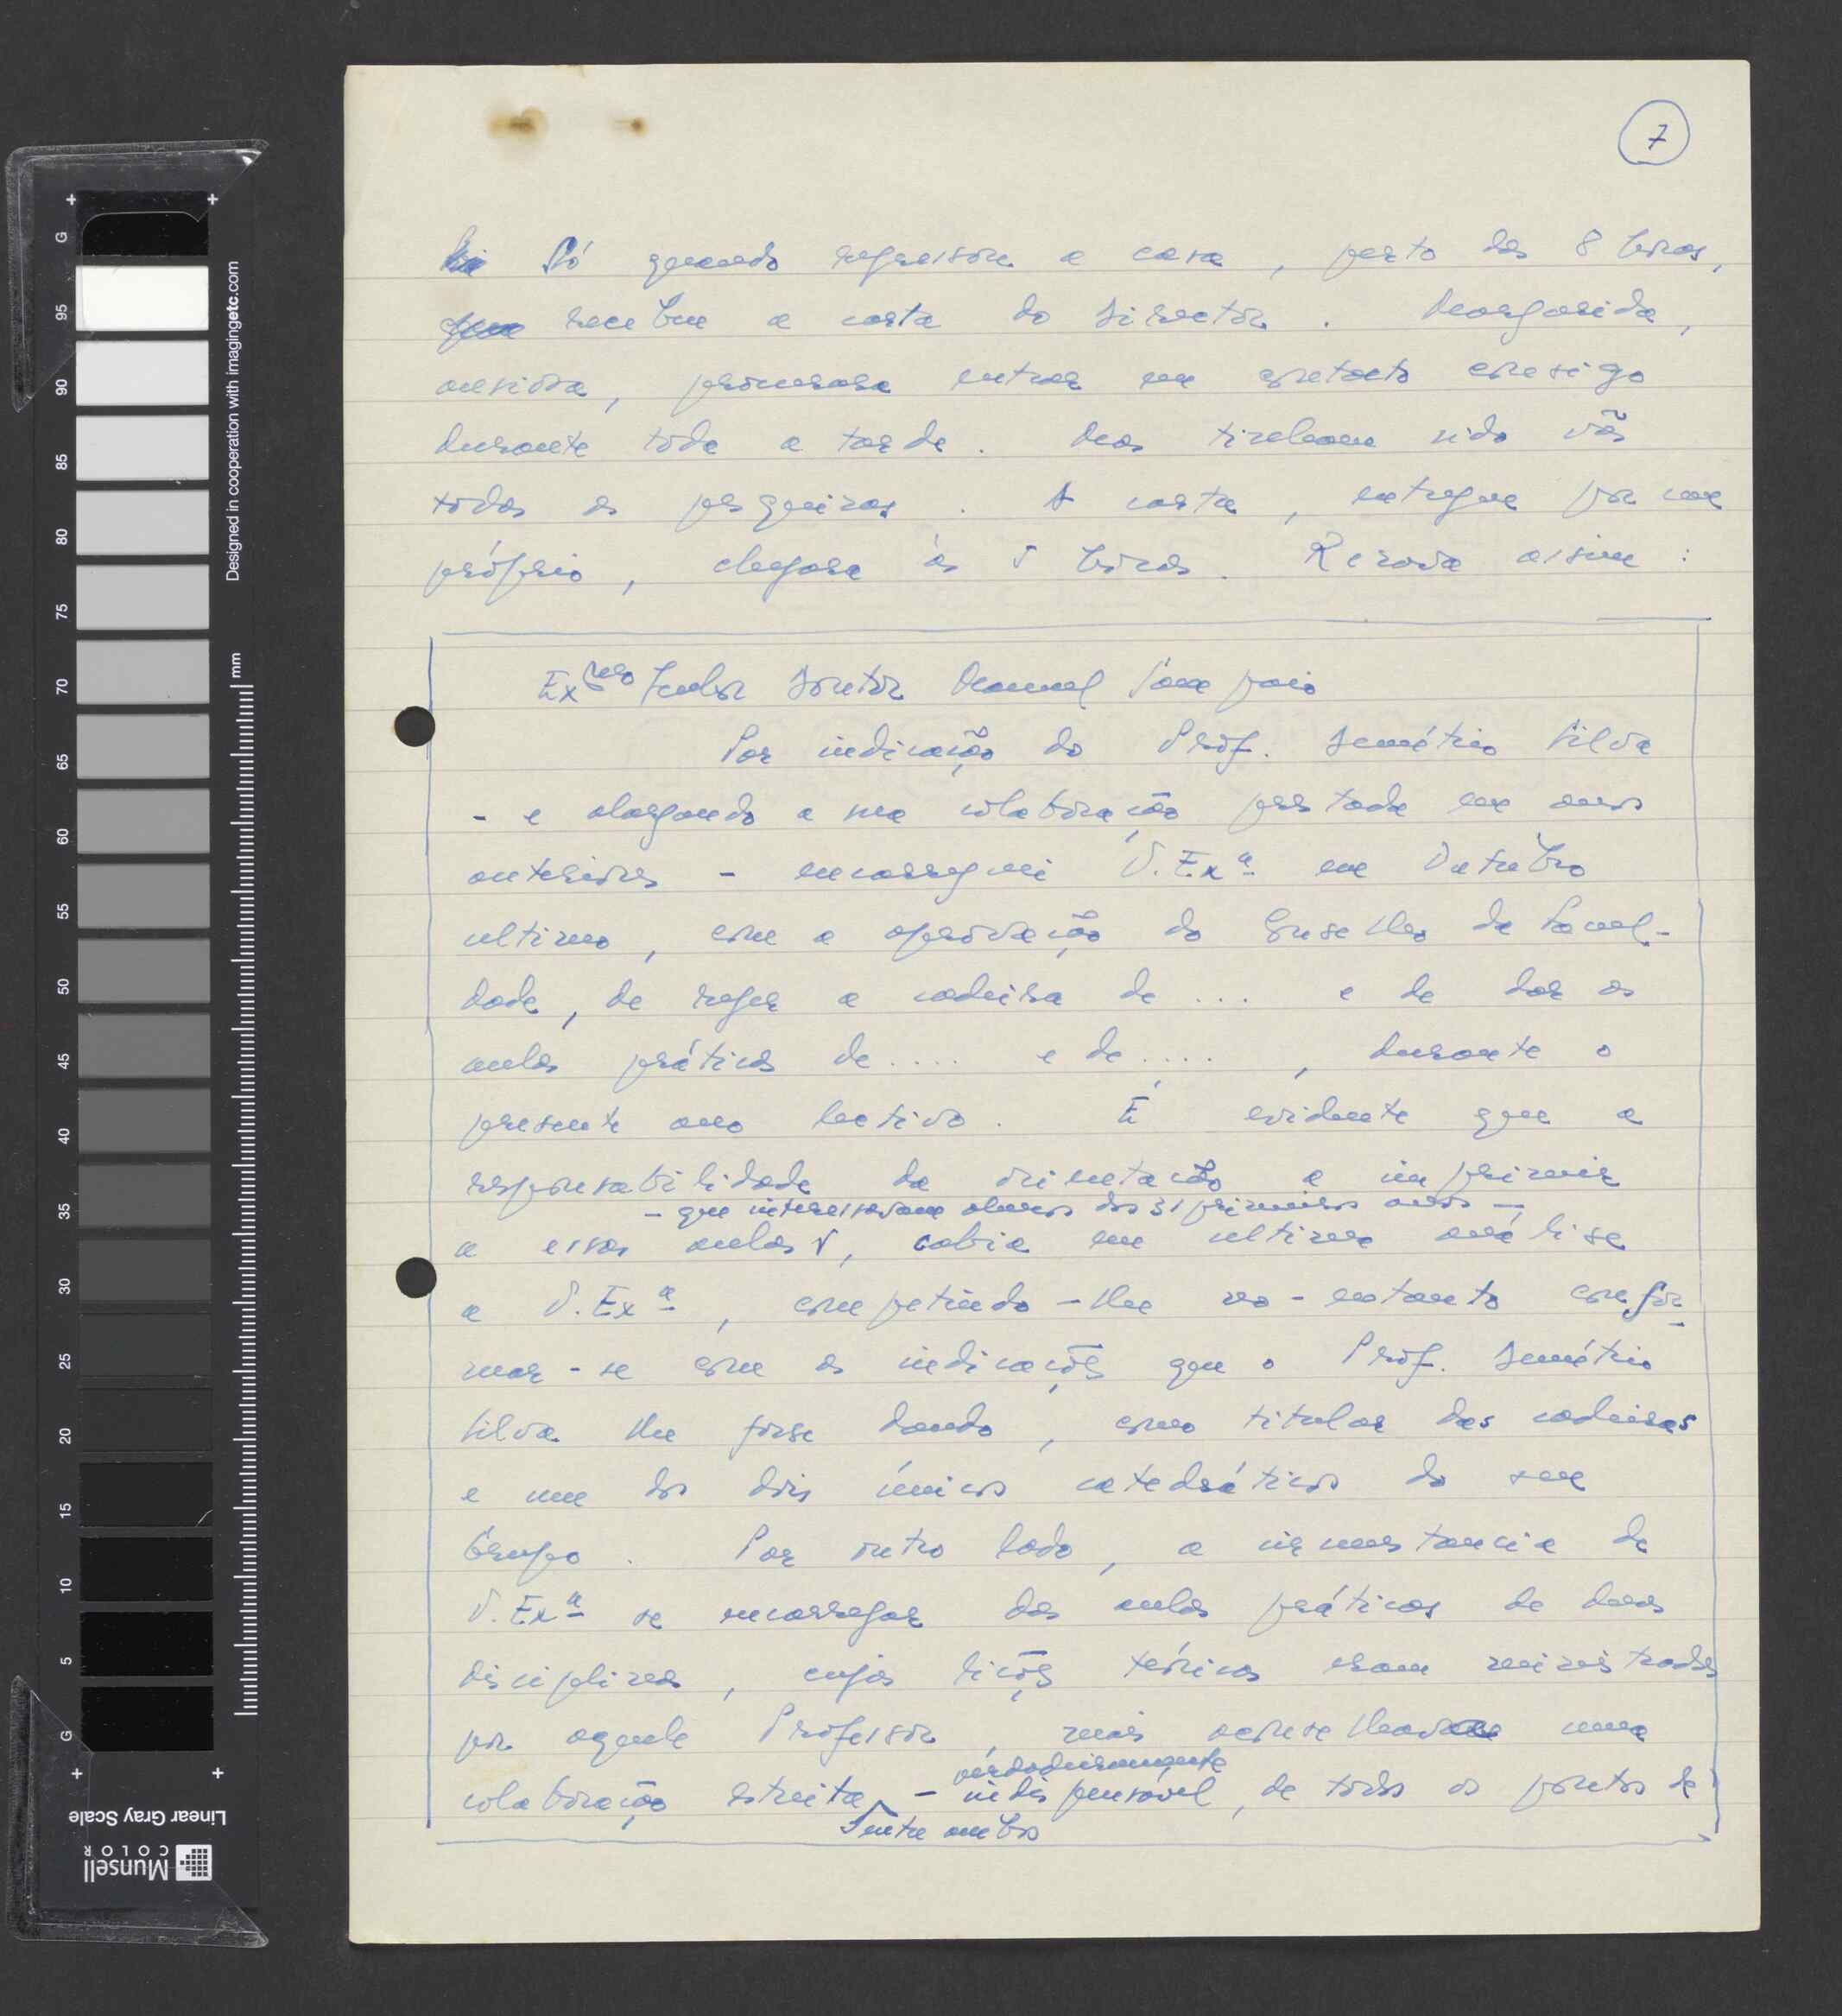 7
Só quando regressou a casa, perto das 8 horas,
recebeu a carta do Director. Margarida,
ansiosa, procurara entrar em contacto consigo
durante toda a tarde. Mas tinham sido vãs
todas as pesquizas. A carta, entregue por um
próprio, chegara às 5 horas. Rezava assim:
Exmo Senhor Doutor Manuel Sampaio
Por indicação do Prof. Demétrio Silva
- e alargando a sua colaboração prestada em anos
anteriores - encarreguei V. Exª em Outubro
ultimo, com a aprovação do Conselho da Facul-
dade, de reger a cadeira de ... e de dar as
aulas práticas de .... e de ....., durante o
presente ano lectivo. É evidente que a
responsabilidade da orientação a imprimir
- que interessavam alunos dos 3 primeiros anos -
a essas aulas, cabia em ultima análise
a V. Exª, competindo-lhe no-entanto confor-
mar-se com as indicações que o Prof. Demétrio
Silva lhe fosse dando, como titular das cadeiras
e um dos dois únicos catedráticos do seu
Grupo. Por outro lado, a circunstancia de
V. Exª se encarregar das aulas práticas de duas
disciplinas, cujas lições teóricas eram ministradas
por aquele Professor, mais aconselhava uma
verdadeiramente
colaboração estreita - indispensável, de todos os pontos de
entre ambos
Designed in cooperation with imagingetc.com
mm
G 95 90 85 80 75 70 65 60 55 50 45 40 35 30 25 20 15 10 5 G
Linear Gray Scale
Munsell
COLOR